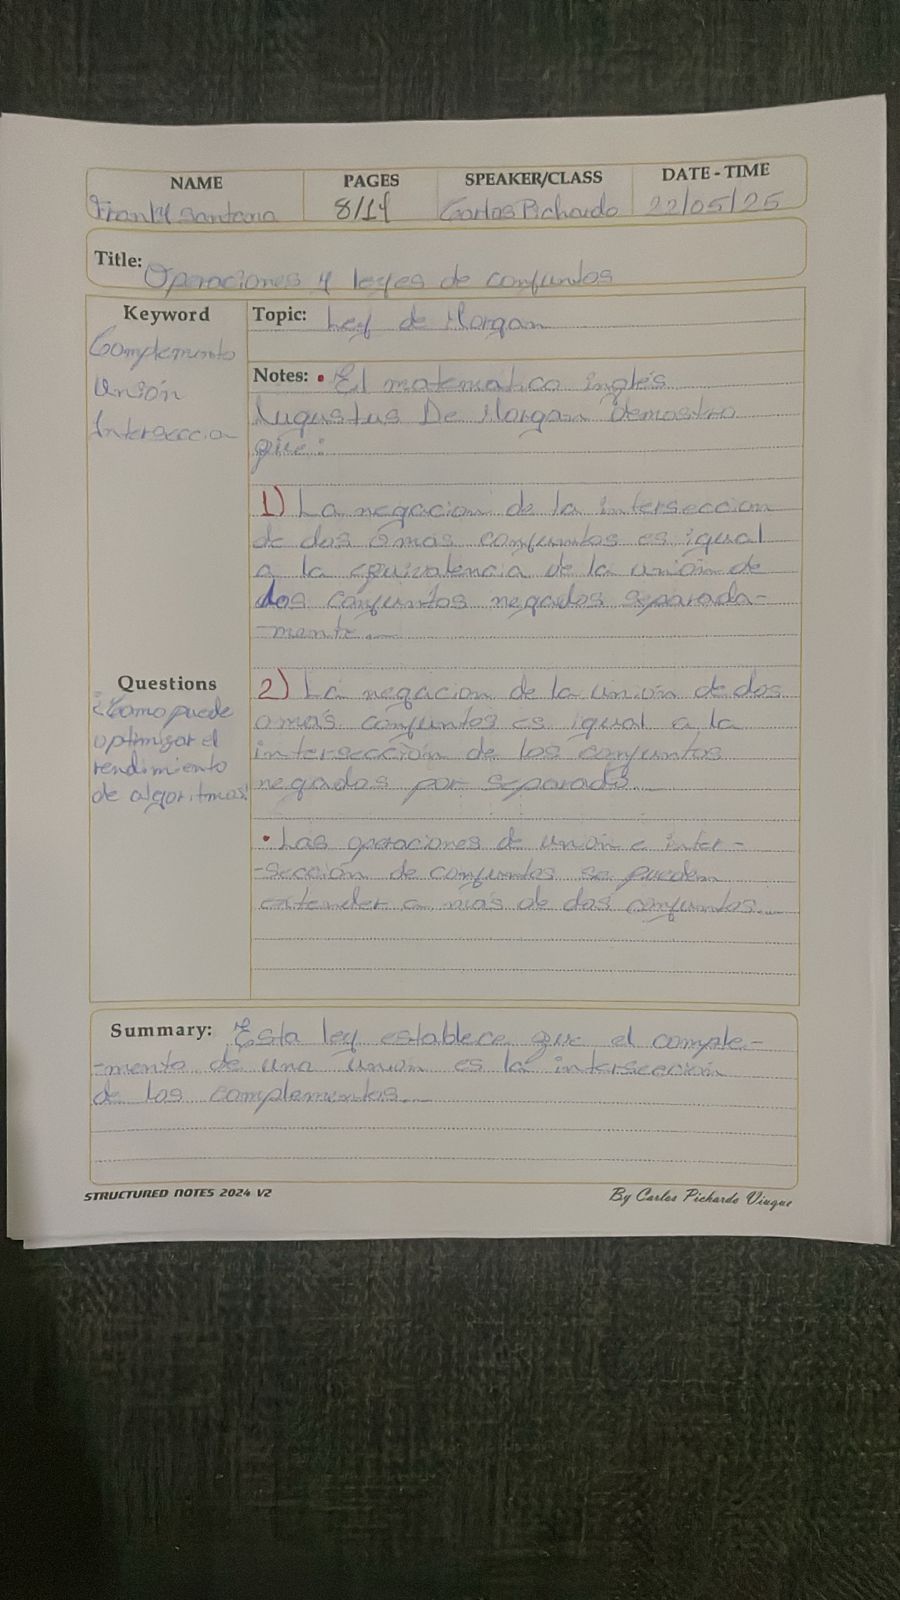 NAME PAGES SPEAKER/CLASS DATE - TIME
Frankl Santana 8/14 Carlos Pichardo 22/05/25
Title: Operaciones y leyes de conjuntos
Keyword
Complemento
Unión
Interseccia
Topic: Ley de Morgan
Notes: • El matematico inglés
Augustus De Morgan Demostro
que:
1) La negacion de la interseccion
de dos o más conjuntos es igual
a la equivalencia de la unión de
dos conjuntos negados separada-
-mente...
2) La negacion de la unión de dos
o más conjuntos es igual a la
intersección de los conjuntos
negados por separado...
• Las operaciones de unión e inter-
-sección de conjuntos se pueden
extender a más de dos conjuntos...
Questions
¿Como puede
optimizar el
rendimiento
de algoritmas?
Summary: Esta ley establece que el comple-
-mento de una unión es la interseccion
de los complementos...
STRUCTURED NOTES 2024 V2 By Carlos Pichardo Viuque